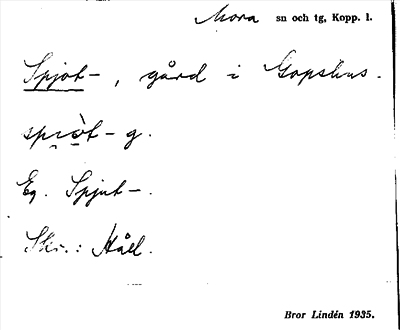 Mora sn och tg, Kopp. l.
Spjot-, gård i Gopshus.
spi̯ò̱t- g.
Eg. Spjut-.
Skr.: Håll.
Bror Lindén 1935.